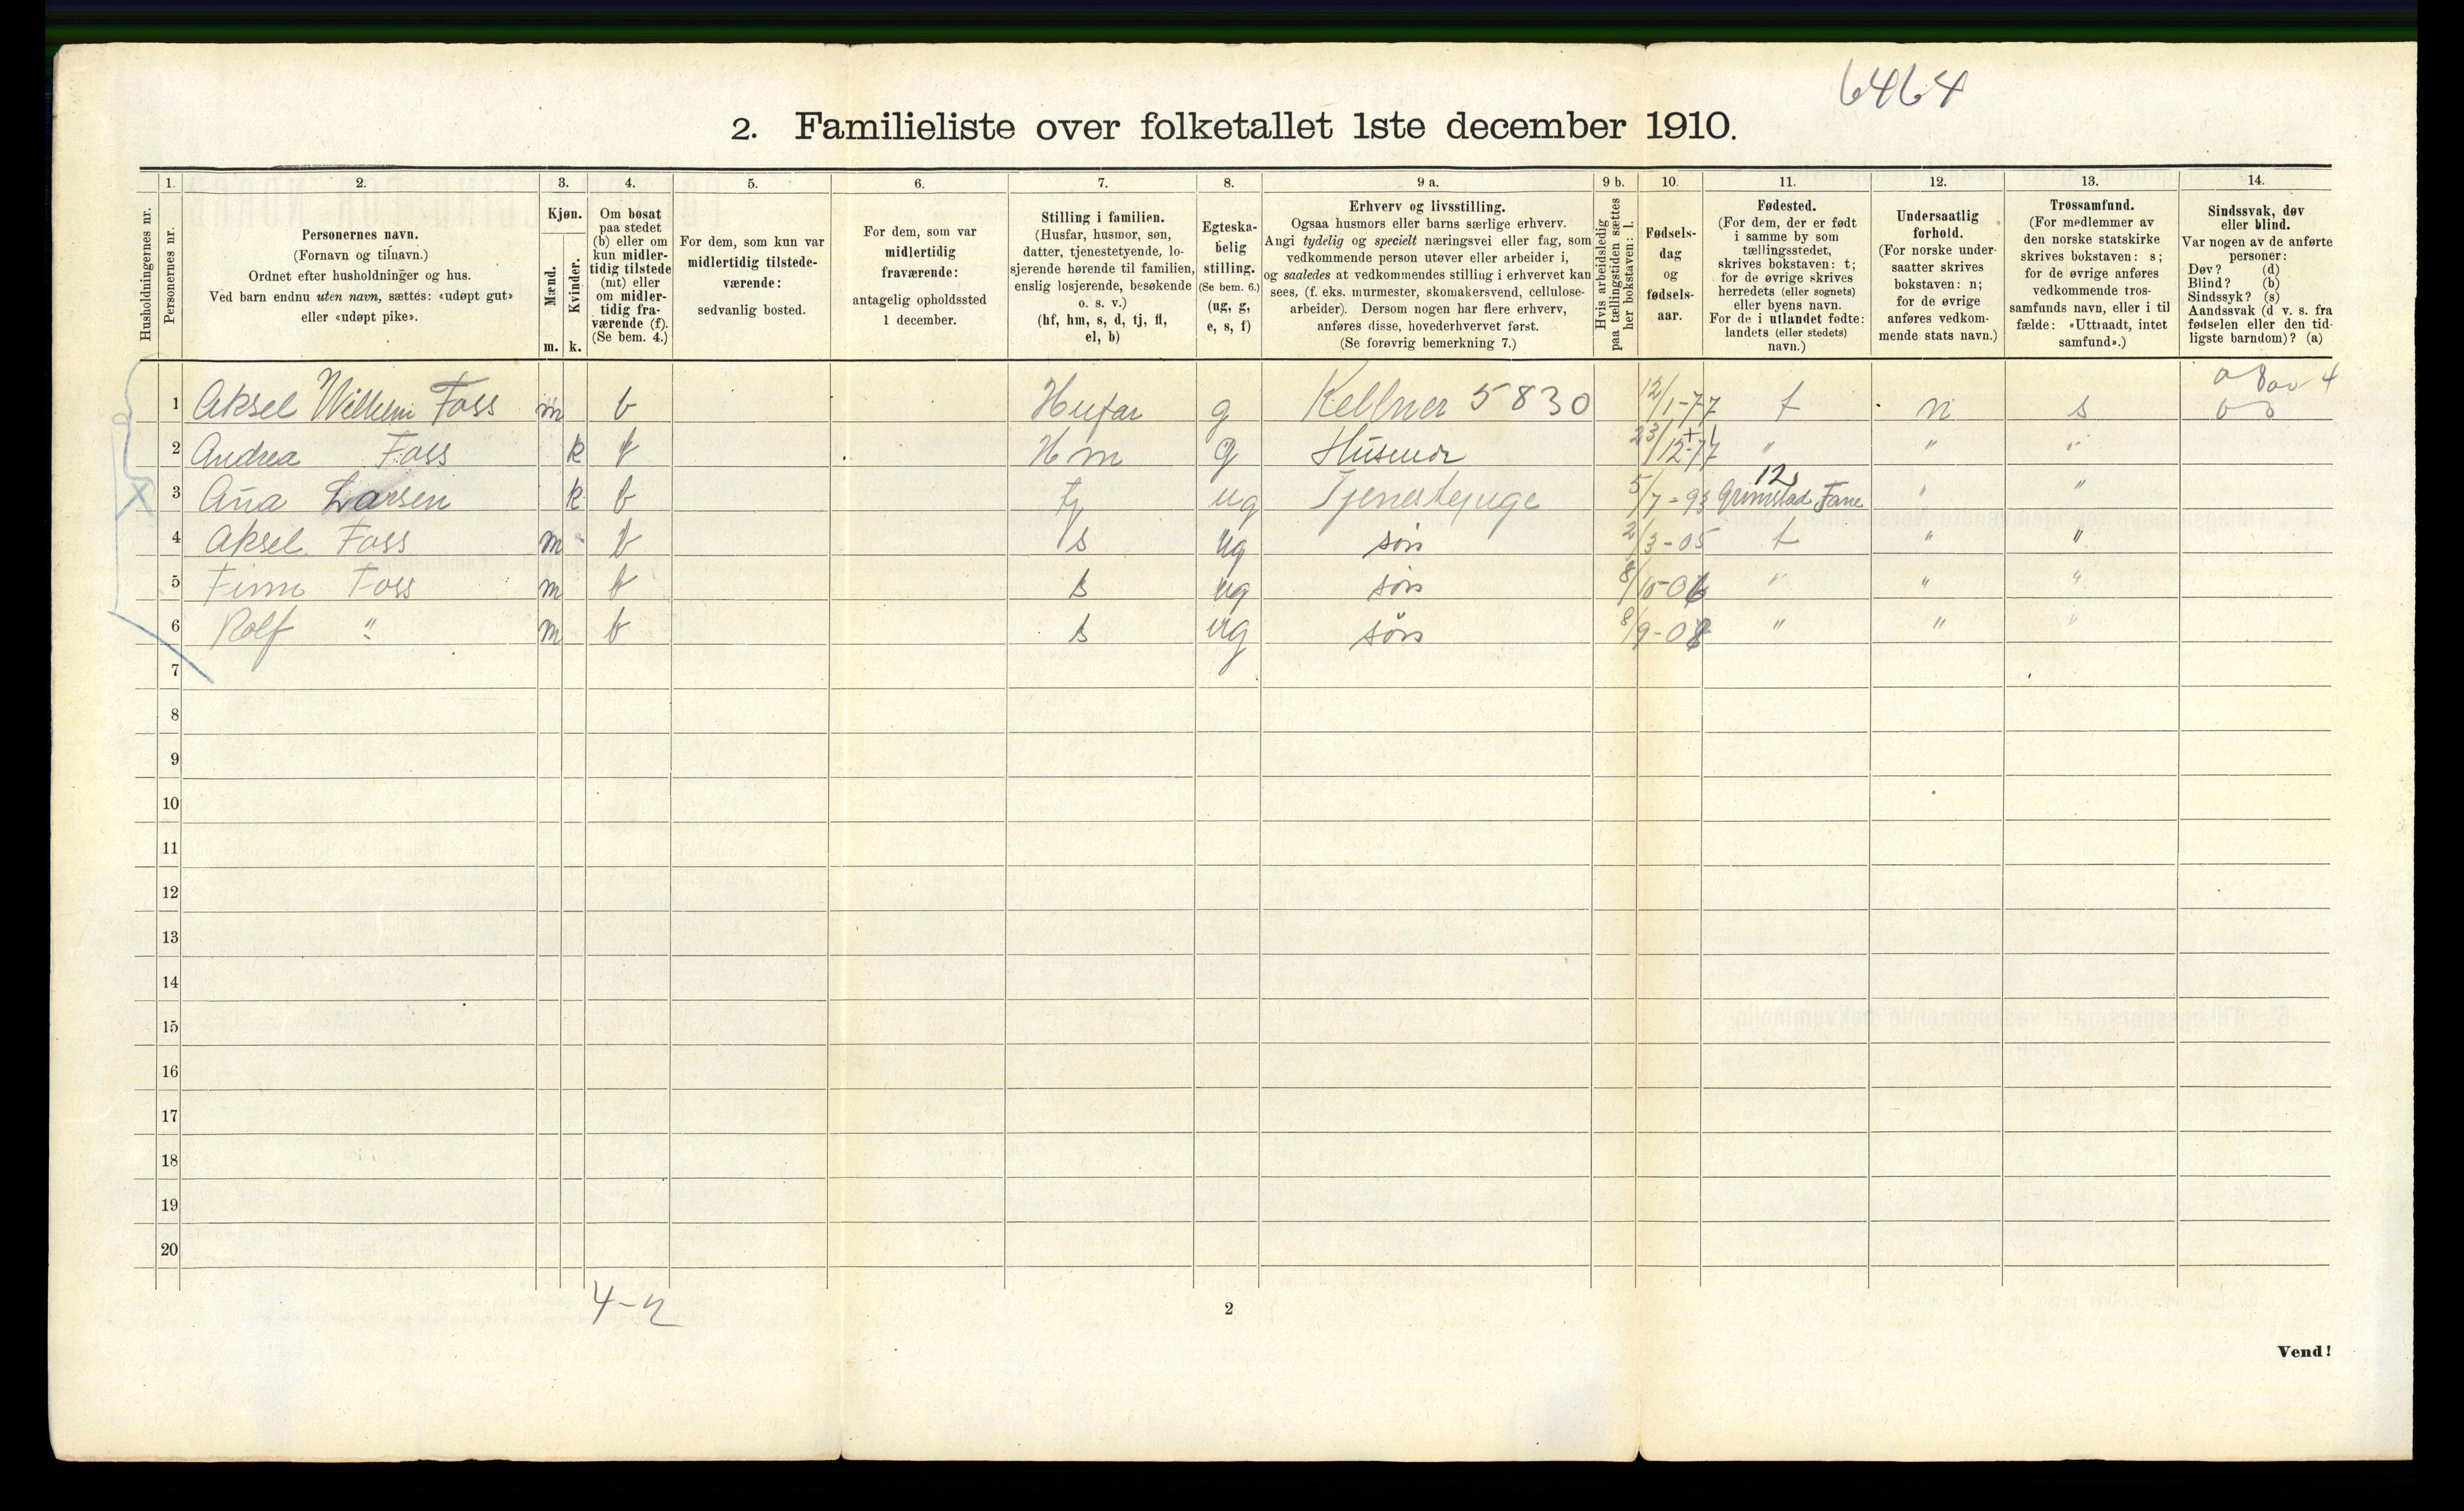 6464
2. Familieliste over folketallet 1ste december 1910.
Husholdningernes nr.
1.
Personernes nr.
2.
Personernes navn.
(Fornavn og tilnavn.)
Ordnet efter husholdninger og hus.
Ved barn endnu uten navn, sættes: «udøpt gut»
eller «udøpt pike».
3.
Kjøn.
Mænd.
m.
Kvinder.
k.
4.
Om bosat
paa stedet
(b) eller om
kun midler-
tidig tilstede
(mt) eller
om midler-
tidig fra-
værende (f).
(Se bem. 4.)
5.
For dem, som kun var
midlertidig tilstede-
værende:
sedvanlig bosted.
6.
For dem, som var
midlertidig
fraværende:
antagelig opholdssted
1 december.
7.
Stilling i familien.
(Husfar, husmor, søn,
datter, tjenestetyende, lo-
sjerende hørende til familien,
enslig losjerende, besøkende
o. s. v.)
(hf, hm, s, d, tj, fl,
el, b)
8.
Egteska-
belig
stilling.
(Se bem. 6.)
(ug, g,
e, s, f)
9 a.
Erhverv og livsstilling.
Ogsaa husmors eller barns særlige erhverv.
Angi tydelig og specielt næringsvei eller fag, som
vedkommende person utøver eller arbeider i,
og saaledes at vedkommendes stilling i erhvervet kan
sees, (f. eks. murmester, skomakersvend, cellulose-
arbeider). Dersom nogen har flere erhverv,
anføres disse, hovederhvervet først.
(Se forøvrig bemerkning 7.)
9 b.
Hvis arbeidsledig
paa tællingstiden sættes
her bokstaven: l.
10.
Fødsels-
dag
og
fødsels-
aar.
11.
Fødested.
(For dem, der er født
i samme by som
tællingsstedet,
skrives bokstaven: t;
for de øvrige skrives
herredets (eller sognets)
eller byens navn.
For de i utlandet fødte:
landets (eller stedets)
navn.)
12.
Undersaatlig
forhold.
(For norske under-
saatter skrives
bokstaven: n;
for de øvrige
anføres vedkom-
mende stats navn.)
13.
Trossamfund.
(For medlemmer av
den norske statskirke
skrives bokstaven: s;
for de øvrige anføres
vedkommende tros-
samfunds navn, eller i til
fælde: «Uttraadt, intet
samfund».)
14.
Sindssvak, døv
eller blind.
Var nogen av de anførte
personer:
Døv? (d)
Blind? (b)
Sindssyk? (s)
Aandssvak (d v. s. fra
fødselen eller den tid-
ligste barndom)? (a)
1 Aksel Wilhelm Foss m b Hufar g Kellner 5830 12/1-77 t n s
2 Andrea Foss k b Hm g Husmor 23/12-77 " " "
12
3 Aña Larsen k b tj ug Tjenestepige 5/7-93 Grimstad Fane " "
4 Aksel Foss m b s ug søn 2/3-05 t " "
5 Finn Foss m b s ug søn 8/10-06 " " "
6 Rolf " m b s ug søn 8/9-08 " " "
7
8
9
10
11
12
13
14
15
16
17
18
19
20
4-2
2
Vend!